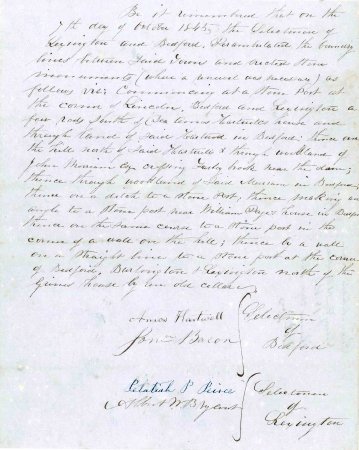 Be it remembered that on the
7th day of October 1845, the Selectmen of
Lexington and Bedford, Perambulated the boundry
lines between said Towns and erected Stone
monuments (where a renewal was necessary) as
follows viz; Commencing at a Stone Post at
the corner of Lincoln, Bedford and Lexington a
few rods South of Amos Hartwell's house and
through land of said Hartwell in Bedford; thence over
the hill north of said Hartwells & through woodland of
John Merriam Esq. crossing Farly brook near the Dam;
thence through woodland of said Merriam in Bedford
thence on a ditch to a Stone Post, thence making an
angle to a Stone post near William Page's house in Bedford
thence on the same course to a Stone post in the
corner of a wall on the hill; thence by a wall
on a straight line to a Stone post at the corner
of Bedford, Burlington & Lexington north of the
house by an old cellar.
Amos Hartwell
Jona Bacon
Selectmen
of
Bedford
Pelatiah P. Peirce
Albert W Bryant
Selectmen
of
Lexington